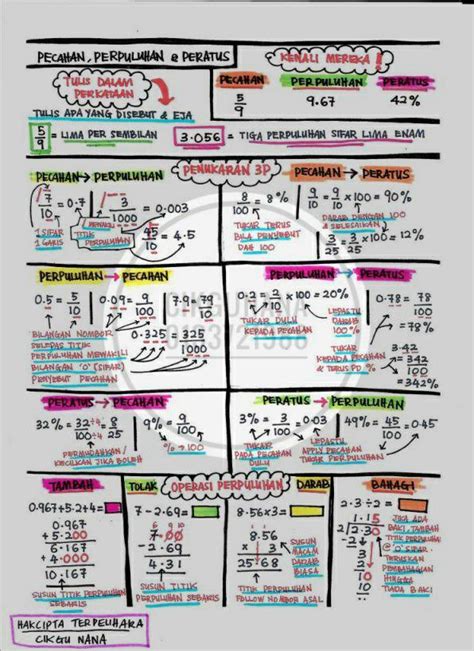 PECAHAN, PERPULUHAN & PERATUS
KENALI MEREKA!
TULIS DALAM PERKATAAN
TULIS APA YANG DISEBUT & EJA
PECAHAN PERPULUHAN PERATUS
5/9 9.67 42%
5/9 = LIMA PER SEMBILAN
3.056 = TIGA PERPULUHAN SIFAR LIMA ENAM
PENUKARAN 3P
PECAHAN → PERPULUHAN
7/10 = 0.7
3/1000 = 0.003
1 SIFAR
1 GARIS
TITIK PERPULUHAN
45/10 = 4.5
PECAHAN → PERATUS
8/100 = 8%
9/10 = 9/10 × 100 = 90%
TUKAR TERUS
BILA PENYEBUT
DAH 100
DARAB DENGAN 100
& SELESAIKAN
3/25 = 3/25 × 100 = 12%
PERPULUHAN → PECAHAN
0.5 = 5/10
0.09 = 9/100
7.9 = 79/10
BILANGAN NOMBOR
SELEPAS TITIK
PERPULUHAN MEWAKILI
BILANGAN '0' (SIFAR)
PENYEBUT PECAHAN
0.325 = 325/1000
PERPULUHAN → PERATUS
0.2 = 2/10 × 100 = 20%
TUKAR DULU
KEPADA PECAHAN
LEPASTU
DARAB
100%
0.78 = 78/100
= 78%
TUKAR
KEPADA PECAHAN
& TERUS PD %
3.42
= 342/100
= 342%
PERATUS → PECAHAN
32% = 32÷4/100÷4 = 8/25
PERMUDAHKAN/
KECILKAN JIKA BOLEH
9% = 9/100
% → 100
PERATUS → PERPULUHAN
3% = 3/100 = 0.03
TUKAR
PADA PECAHAN
DULU
LEPASTU
APPLY PECAHAN
TUKAR PERPULUHAN
49% = 45/100 = 0.45
OPERASI PERPULUHAN
TAMBAH
0.967+5.2+4=
0.967
+ 5.200
6.167
+ 4.000
10.167
SUSUN TITIK PERPULUHAN
SEBARIS
TOLAK
7-2.69=
6 9 10
7.00
- 2.69
4.31
SUSUN TITIK
PERPULUHAN SEBARIS
DARAB
8.56×3=
8.56
× 3
25.68
SUSUN
MACAM
DARAB
BIASA
TITIK PERPULUHAN
FOLLOW NOMBOR ASAL
BAHAGI
2.3÷2=
1.15
2 2.30
- 2
3
- 2
10
10
JIKA ADA
BAKI, TAMBAH
TITIK PERPULUHAN
& '0' SIFAR.
TERUSKAN
PEMBAHAGIAN
HINGGA
TIADA BAKI
HAKCIPTA TERPELIHARA
CIKGU NANA